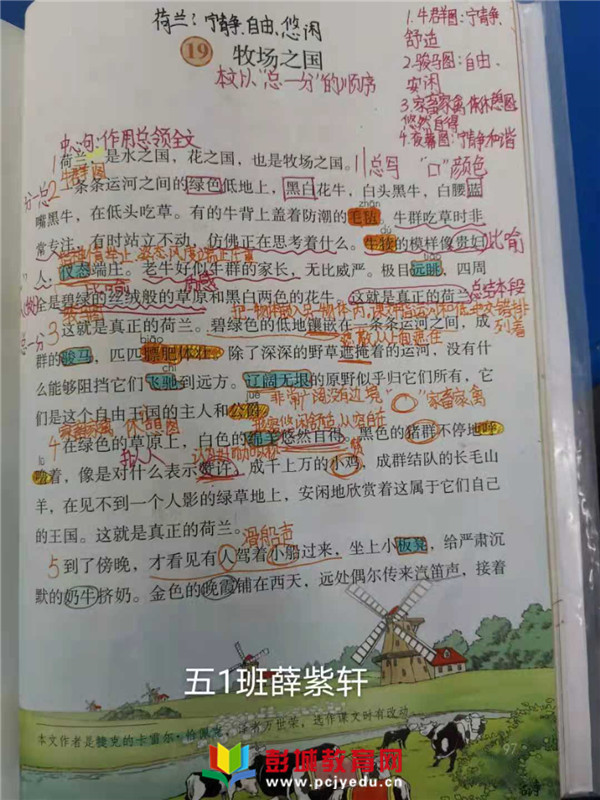 荷兰：宁静、自由、悠闲
19 牧场之国
本文以“总一分”的顺序
1.牛群图：宁静、
舒适
2.骏马图：自由、
安闲
3.家畜家禽 休憩图
悠然自得
4.夜幕图：宁静和谐
中心句：作用总领全文
1荷兰，是水之国，花之国，也是牧场之国。
总写 “口”颜色
牛群图
2一条条运河之间的绿色低地上，黑白花牛，白头黑牛，白腰蓝
zhān
嘴黑牛，在低头吃草。有的牛背上盖着防潮的毛毡。牛群吃草时非
dú
常专注，有时站立不动，仿佛正在思考着什么。牛犊的模样像贵妇
比喻
人，仪态端庄。老牛好似牛群的家长，无比威严。极目远眺，四周
全是碧绿的丝绒般的草原和黑白两色的花牛。这就是真正的荷兰。
总结本段
3这就是真正的荷兰。碧绿色的低地镶嵌在一条条运河之间，成
biāo
群的骏马，匹匹膘肥体壮。除了深深的野草遮掩着的运河，没有什
chí
么能够阻挡它们飞驰到远方。辽阔无垠的原野似乎归它们所有，它
非常广阔没有边境 “○”家畜家禽
们是这个自由王国的主人和公爵。
家畜家禽 休憩图
4在绿色的草原上，白色的绵羊悠然自得。黑色的猪群不停地呼
拟人
噜着，像是对什么表示赞许。成千上万的小鸡，成群结队的长毛山
羊，在见不到一个人影的绿草地上，安闲地欣赏着这属于它们自己
的王国。这就是真正的荷兰。
5到了傍晚，才看见有人驾着小船过来，坐上小板凳，给严肃沉
默的奶牛挤奶。金色的晚霞铺在西天，远处偶尔传来汽笛声，接着
五1班薛紫轩
本文作者是捷克的卡雷尔·恰佩克，译者万世荣，选作课文时有改动。
97
彭城教育网
www.pcjyedu.cn